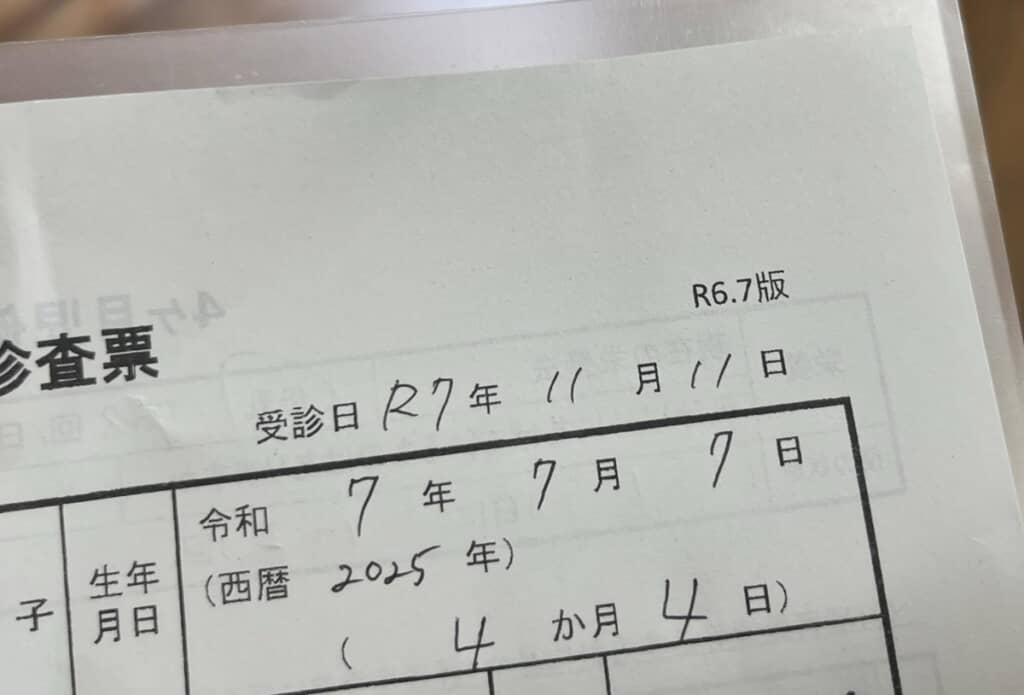 R6.7版
診査票
受診日 R7年 11月11日
子
生年
月日
令和 7年 7月 7日
(西暦 2025年)
( 4か月 4日)